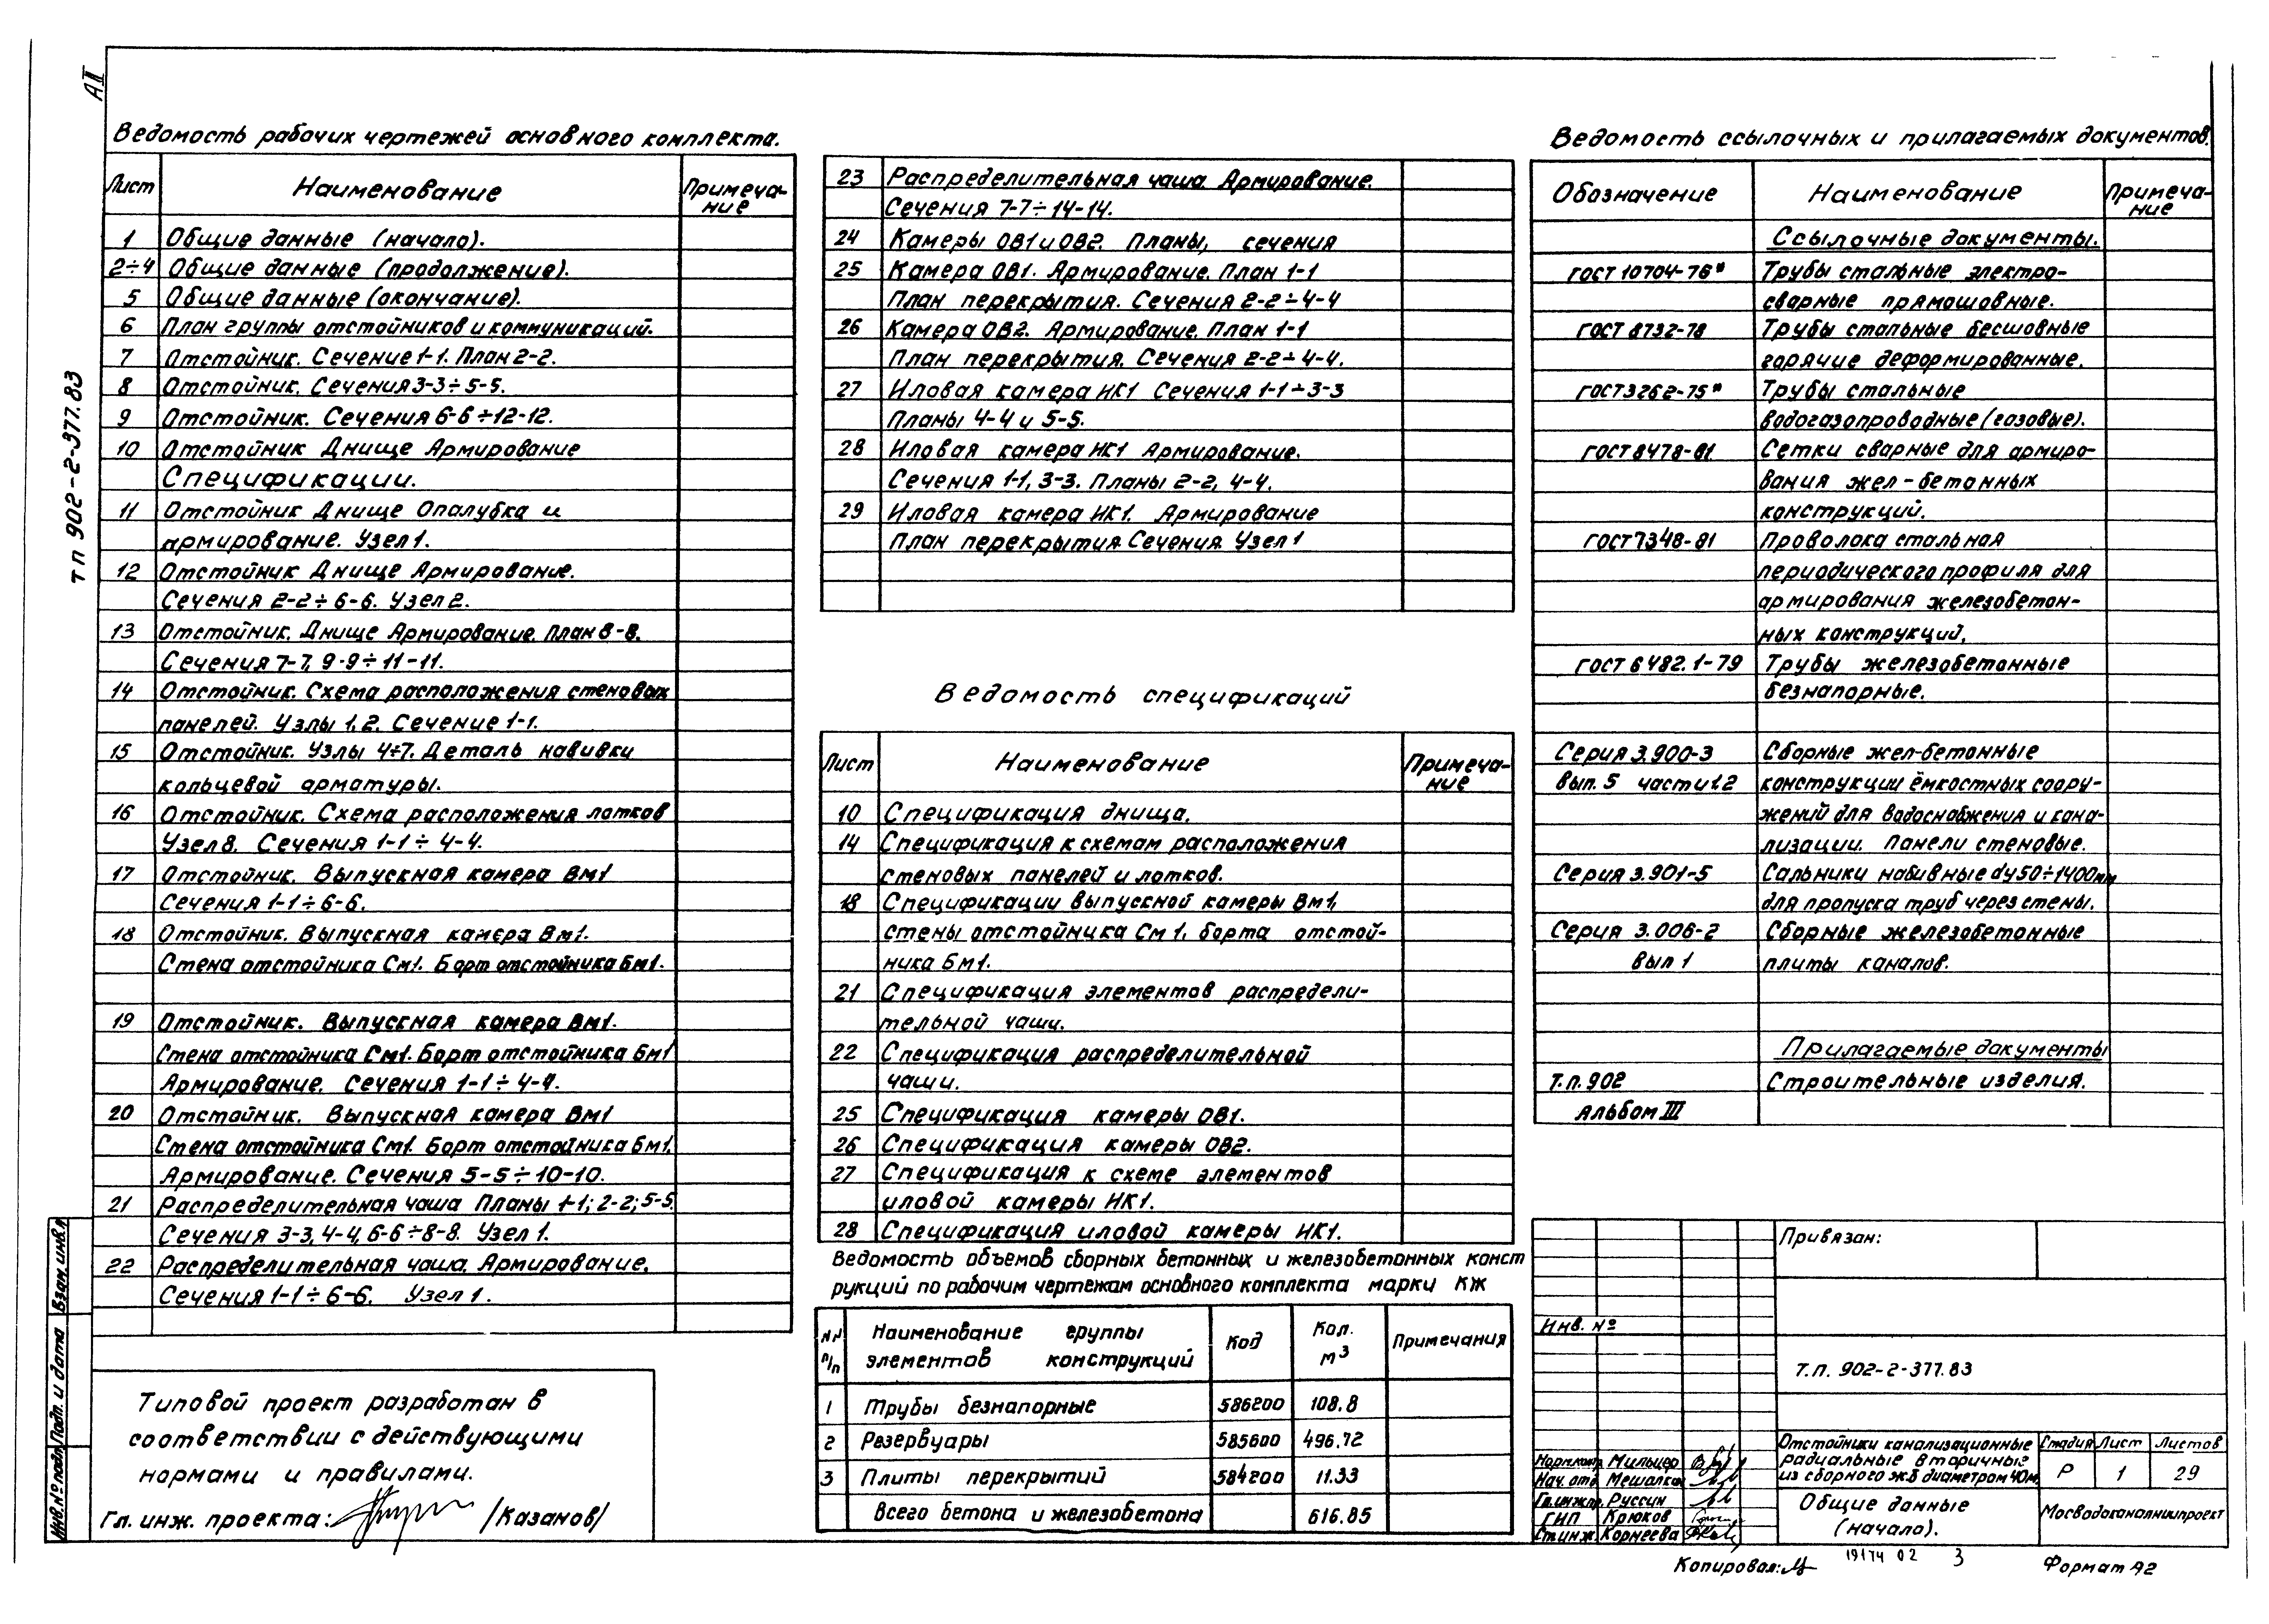 АII
тп 902-2-377.83
Ведомость рабочих чертежей основного комплекта.
Лист Наименование Примеча-
ние
1 Общие данные (начало).
2÷4 Общие данные (продолжение).
5 Общие данные (окончание).
6 План группы отстойников и коммуникаций.
7 Отстойник. Сечение 1-1. План 2-2.
8 Отстойник. Сечения 3-3÷5-5.
9 Отстойник. Сечения 6-6÷12-12.
10 Отстойник Днище Армирование
Спецификации.
11 Отстойник Днище Опалубка и
армирование. Узел 1.
12 Отстойник Днище Армирование.
Сечения 2-2÷6-6. Узел 2.
13 Отстойник. Днище Армирование. План 8-8.
Сечения 7-7, 9-9÷11-11.
14 Отстойник. Схема расположения стеновых
панелей. Узлы 1, 2. Сечение 1-1.
15 Отстойник. Узлы 4÷7. Деталь навивки
кольцевой арматуры.
16 Отстойник. Схема расположения лотков
Узел 8. Сечения 1-1÷4-4.
17 Отстойник. Выпускная камера Вм1
Сечения 1-1÷6-6.
18 Отстойник. Выпускная камера Вм1.
Стена отстойника См1. Борт отстойника Бм1.
19 Отстойник. Выпускная камера Вм1.
Стена отстойника См1. Борт отстойника Бм1
Армирование. Сечения 1-1÷4-4.
20 Отстойник. Выпускная камера Вм1
Стена отстойника См1. Борт отстойника Бм1.
Армирование. Сечения 5-5÷10-10.
21 Распределительная чаша Планы 1-1; 2-2; 5-5.
Сечения 3-3, 4-4, 6-6÷8-8. Узел 1.
22 Распределительная чаша. Армирование.
Сечения 1-1÷6-6. Узел 1.
Типовой проект разработан в
соответствии с действующими
нормами и правилами.
Гл. инж. проекта: /Казанов/
Взам. инв.№
Подп. и дата
Инв.№ подл.
23 Распределительная чаша. Армирование.
Сечения 7-7÷14-14.
24 Камеры ОВ1 и ОВ2. Планы, сечения
25 Камера ОВ1. Армирование. План 1-1
План перекрытия. Сечения 2-2÷4-4
26 Камера ОВ2. Армирование. План 1-1
План перекрытия. Сечения 2-2÷4-4.
27 Иловая камера ИК1 Сечения 1-1÷3-3
Планы 4-4 и 5-5.
28 Иловая камера ИК1 Армирование.
Сечения 1-1, 3-3. Планы 2-2, 4-4.
29 Иловая камера ИК1. Армирование
План перекрытия. Сечения. Узел 1
Ведомость спецификаций
Лист Наименование Примеча-
ние
10 Спецификация днища.
14 Спецификация к схемам расположения
стеновых панелей и лотков.
18 Спецификации выпускной камеры Вм1,
стены отстойника См1, борта отстой-
ника Бм1.
21 Спецификация элементов распредели-
тельной чаши.
22 Спецификация распределительной
чаши.
25 Спецификация камеры ОВ1.
26 Спецификация камеры ОВ2.
27 Спецификация к схеме элементов
иловой камеры ИК1.
28 Спецификация иловой камеры ИК1.
Ведомость объемов сборных бетонных и железобетонных конст
рукций по рабочим чертежам основного комплекта марки КЖ
NN
п/п Наименование группы
элементов конструкций Код Кол.
м³ Примечания
1 Трубы безнапорные 586200 108.8
2 Резервуары 585600 496.72
3 Плиты перекрытий 584200 11.33
Всего бетона и железобетона 616.85
Ведомость ссылочных и прилагаемых документов.
Обозначение Наименование Примеча-
ние
Ссылочные документы.
ГОСТ 10704-76* Трубы стальные электро-
сварные прямошовные.
ГОСТ 8732-78 Трубы стальные бесшовные
горячие деформированные.
ГОСТ 3262-75* Трубы стальные
водогазопроводные (газовые).
ГОСТ 8478-81 Сетки сварные для армиро-
вания жел-бетонных
конструкций.
ГОСТ 7348-81 Проволока стальная
периодического профиля для
армирования железобетон-
ных конструкций.
ГОСТ 6482.1-79 Трубы железобетонные
безнапорные.
Серия 3.900-3 Сборные жел-бетонные
вып. 5 части 1.2 конструкции ёмкостных соору-
жений для водоснабжения и кана-
лизации. Панели стеновые.
Серия 3.901-5 Сальники набивные dу50÷1400мм
для пропуска труб через стены.
Серия 3.006-2 Сборные железобетонные
вып 1 плиты каналов.
Прилагаемые документы
Т.п. 902 Строительные изделия.
Альбом III
Привязан:
Инв. №
Т.п. 902-2-377.83
Нормконтр. Мильцер
Нач. отд. Мешалкин
Гл.инж.пр. Руссин
ГИП Крюков
Ст.инж. Корнеева
Отстойники канализационные
радиальные вторичные
из сборного ж.б диаметром 40м.
Стадия Лист Листов
Р 1 29
Общие данные
(начало).
Мосводоканалниипроект
Копировал:
19174 02 3
Формат А2